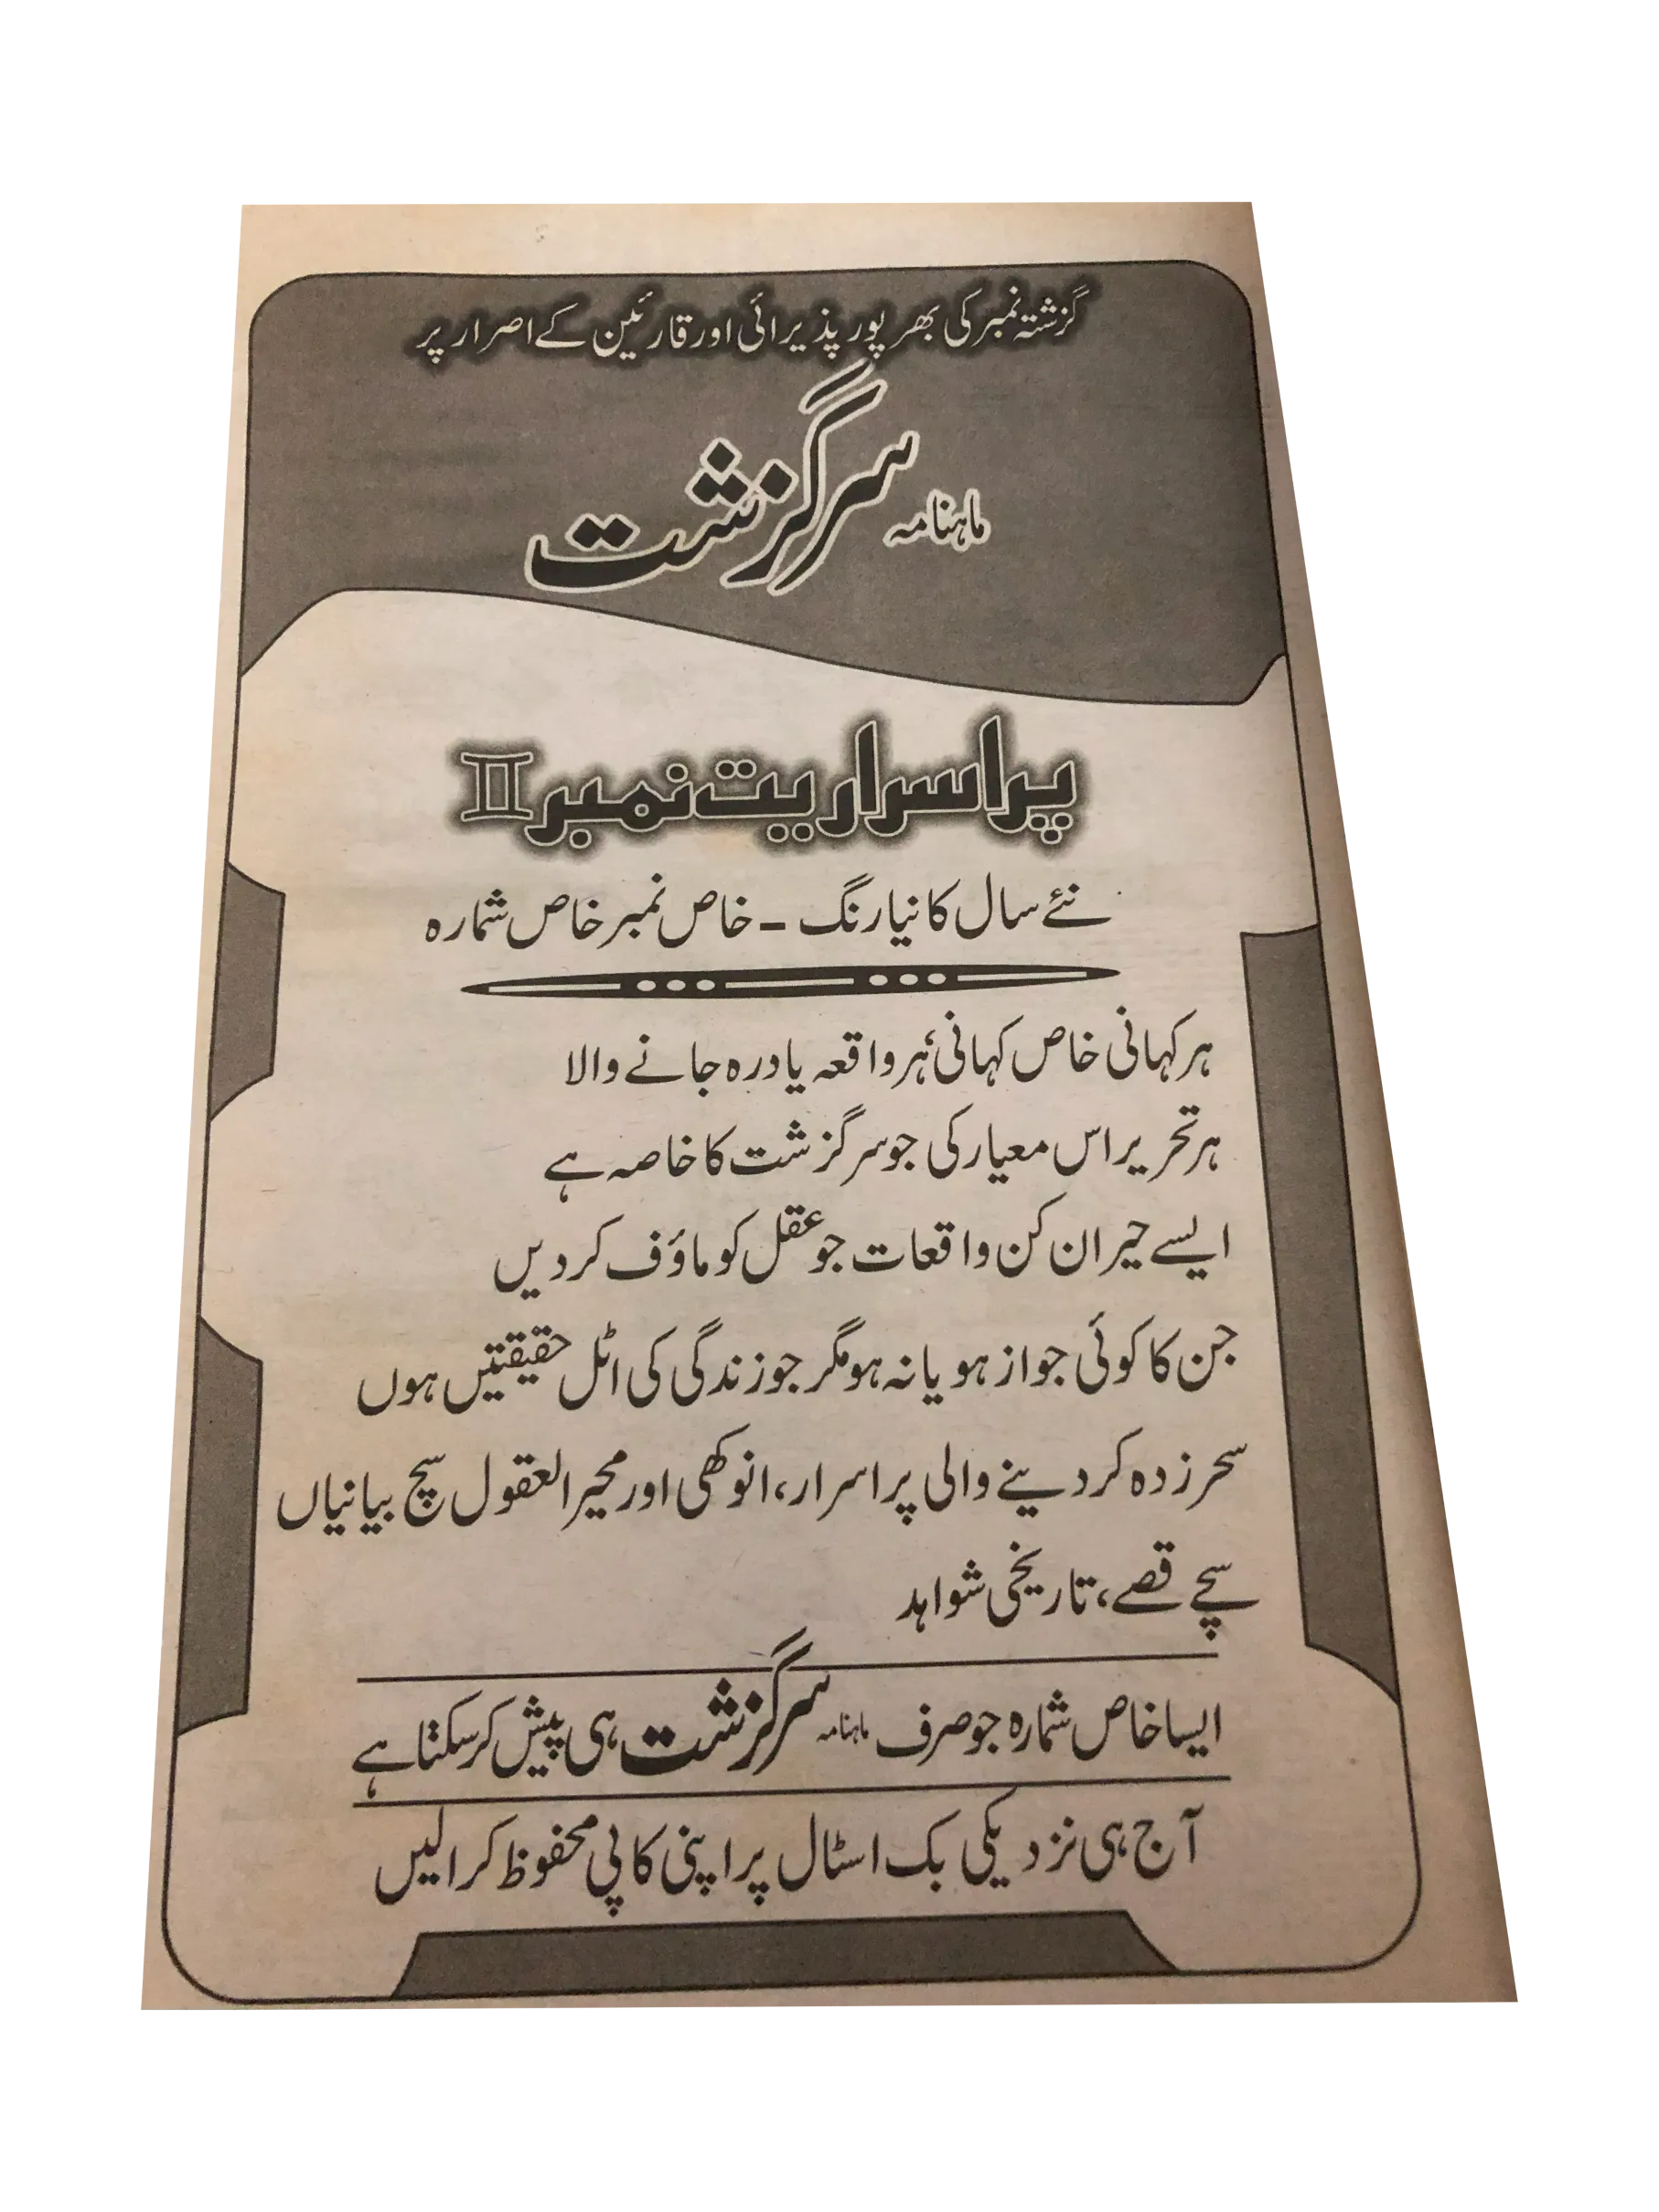 گزشتہ نمبر کی بھر پور پذیرائی اور قارئین کے اصرار پر
ماہنامہ سرگزشت
پراسراریت نمبر II
نئے سال کا نیا رنگ - خاص نمبر خاص شمارہ
ہر کہانی خاص کہانی، ہر واقعہ یاد رہ جانے والا
ہر تحریر اس معیار کی جو سرگزشت کا خاصہ ہے
ایسے حیران کن واقعات جو عقل کو ماؤف کر دیں
جن کا کوئی جواز ہو یا نہ ہو مگر جو زندگی کی اٹل حقیقتیں ہوں
سحر زدہ کر دینے والی پر اسرار، انوکھی اور محیر العقول سچ بیانیاں
سچے قصے، تاریخی شواہد
ایسا خاص شمارہ جو صرف ماہنامہ سرگزشت ہی پیش کر سکتا ہے
آج ہی نزدیکی بک اسٹال پر اپنی کاپی محفوظ کرالیں